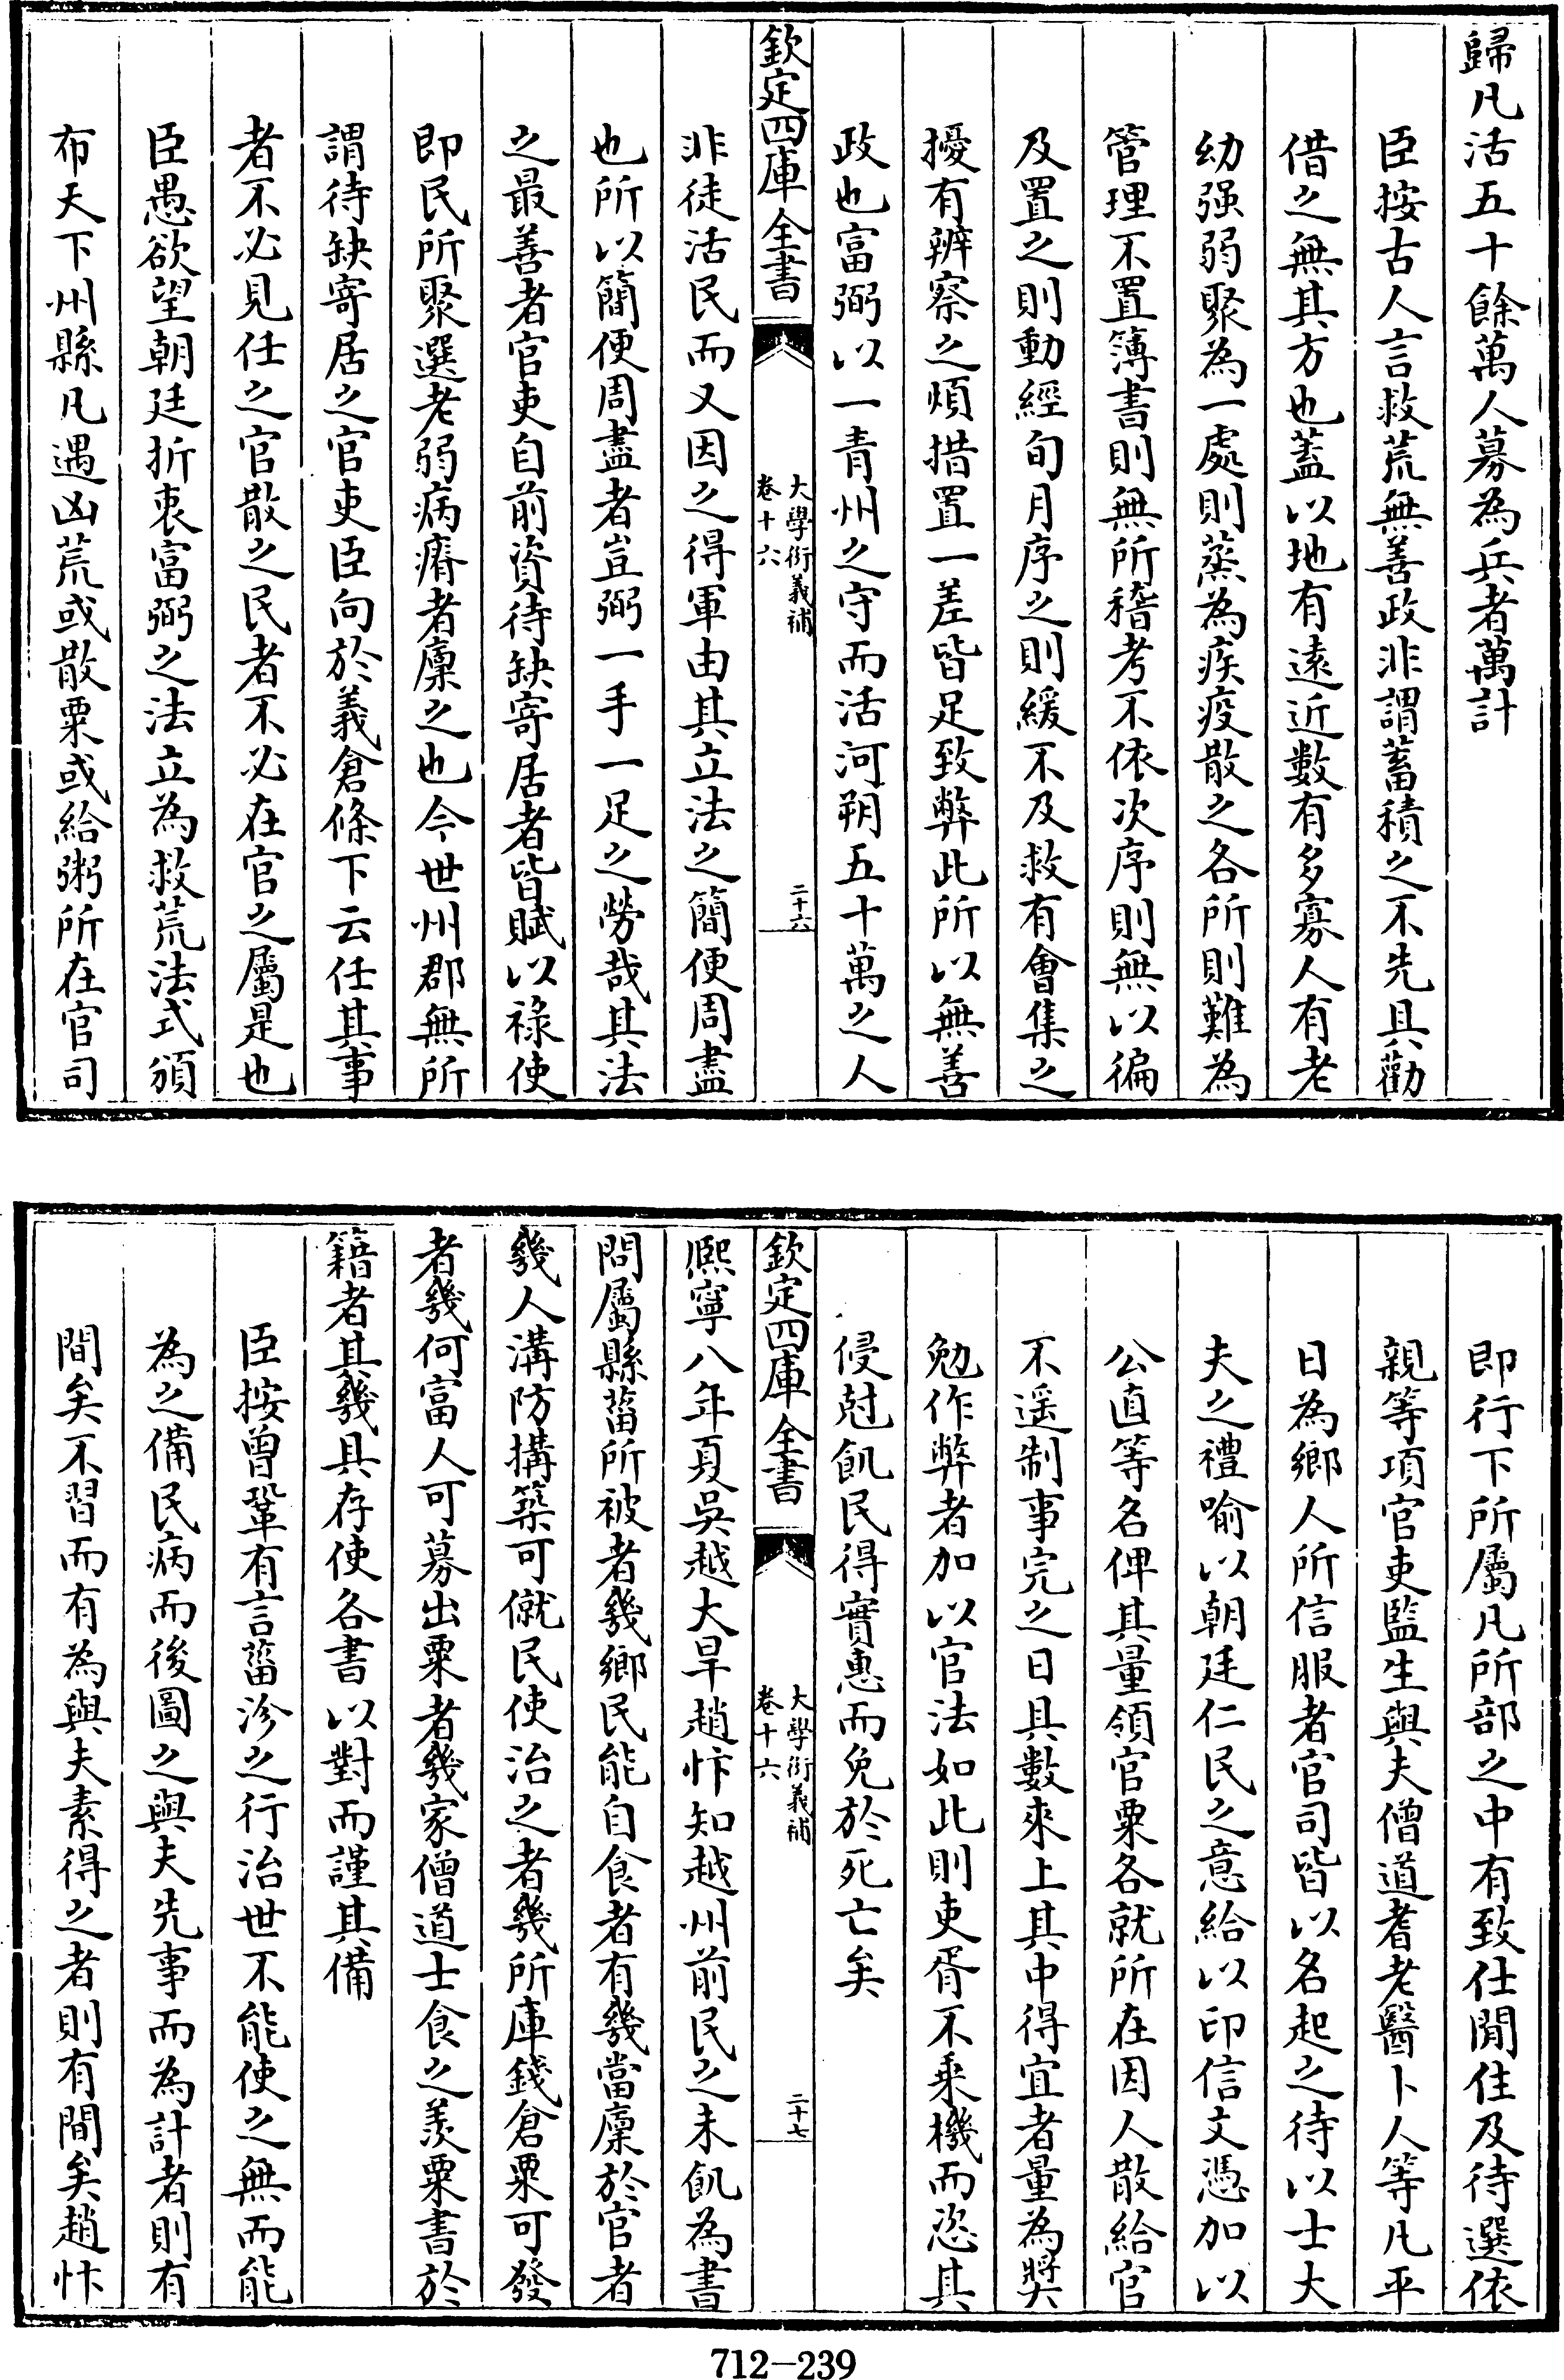 歸凡活五十餘萬人募為兵者萬計
臣按古人言救荒無善政非謂蓄積之不先具勸
借之無其方也蓋以地有遠近數有多寡人有老
幼强弱聚為一處則蒸為疾疫散之各所則難為
管理不置簿書則無所稽考不依次序則無以徧
及置之則動經旬月序之則緩不及救有會集之
擾有辨察之煩措置一差皆足致弊此所以無善
政也富弼以一青州之守而活河朔五十萬之人
欽定四庫全書
大學衍義補
卷十六
二十六
非徒活民而又因之得軍由其立法之簡便周盡
也所以簡便周盡者豈弼一手一足之勞哉其法
之最善者官吏自前資待缺寄居者皆賦以祿使
即民所聚選老弱病瘠者廩之也今世州郡無所
謂待缺寄居之官吏臣向於義倉條下云任其事
者不必見任之官散之民者不必在官之屬是也
臣愚欲望朝廷折衷富弼之法立為救荒法式頒
布天下州縣凡遇凶荒或散粟或給粥所在官司
即行下所屬凡所部之中有致仕閒住及待選依
親等項官吏監生與夫僧道耆老醫卜人等凡平
日為鄉人所信服者官司皆以名起之待以士大
夫之禮喻以朝廷仁民之意給以印信文憑加以
公直等名俾其量領官粟各就所在因人散給官
不遥制事完之日具數來上其中得宜者量為獎
勉作弊者加以官法如此則吏胥不乗機而恣其
侵尅飢民得實惠而免於死亡矣
欽定四庫全書
大學衍義補
卷十六
二十七
熈寧八年夏吳越大旱趙忭知越州前民之未飢為書
問屬縣菑所被者幾鄉民能自食者有幾當廩於官者
幾人溝防搆築可僦民使治之者幾所庫錢倉粟可發
者幾何富人可募出粟者幾家僧道士食之羡粟書於
籍者其幾具存使各書以對而謹其備
臣按曾鞏有言菑沴之行治世不能使之無而能
為之備民病而後圖之與夫先事而為計者則有
間矣不習而有為與夫素得之者則有間矣趙忭
712-239